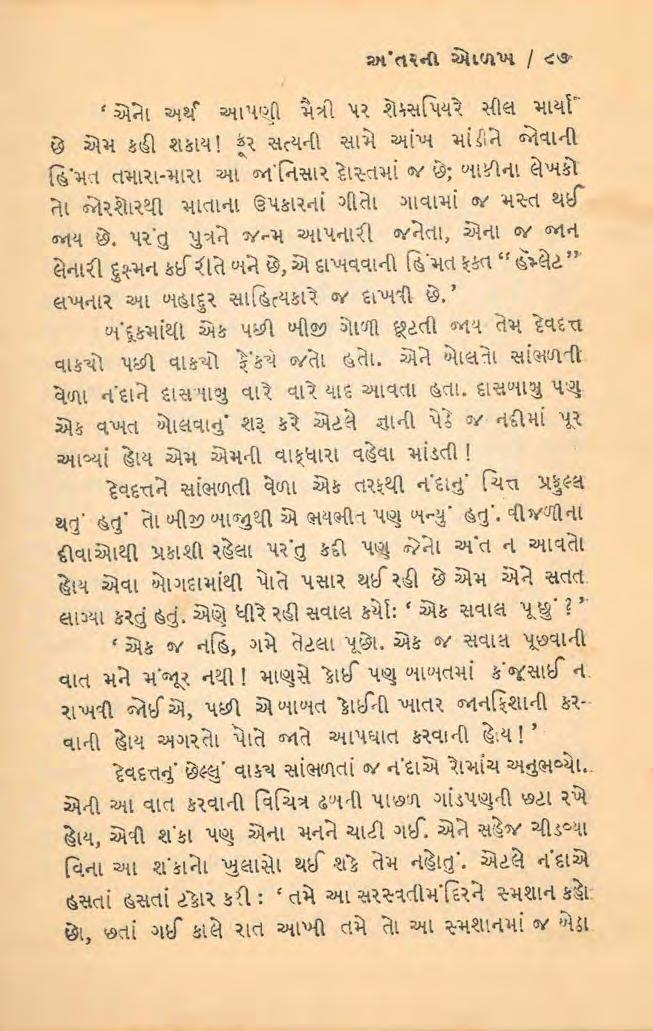 અંતરની ઓળખ / ૮૭
‘ એનો અર્થ આપણી મૈત્રી પર શેક્સપિયરે સીલ માર્યાં
છે એમ કહી શકાય! ક્રૂર સત્યની સામે આંખ માંડીને જોવાની
હિંમત તમારા-મારા આ જાંનિસાર દોસ્તમાં જ છે; બાકીના લેખકો
તો જોરશોરથી માતાના ઉપકારનાં ગીતો ગાવામાં જ મસ્ત થઈ
જાય છે. પરંતુ પુત્રને જન્મ આપનારી જનેતા, એના જ જાન
લેનારી દુશ્મન કઈ રીતે બને છે, એ દાખવવાની હિંમત ફક્ત “ હૅમ્લેટ ”
લખનાર આ બહાદુર સાહિત્યકારે જ દાખવી છે.’
બંદૂકમાંથી એક પછી બીજી ગોળી છૂટતી જાય તેમ દેવદત્ત
વાકયો પછી વાકયો ફેંકયે જતો હતો. એને બોલતો સાંભળતી
વેળા નંદાને દાસબાબુ વારે વારે યાદ આવતા હતા. દાસબાબુ પણ
એક વખત બોલવાનું શરૂ કરે એટલે જ્ઞાની પેઠે જ નદીમાં પૂર
આવ્યાં હોય એમ એમની વાક્ધારા વહેવા માંડતી !
દેવદત્તને સાંભળતી વેળા એક તરફથી નંદાનું ચિત્ત પ્રફુલ્લ
થતું હતું તો બીજી બાજુથી એ ભયભીત પણ બન્યું હતું. વીજળીના
દીવાઓથી પ્રકાશી રહેલા પરંતુ કદી પણ જેનો અંત ન આવતો
હોય એવા બોગદામાંથી પોતે પસાર થઈ રહી છે એમ એને સતત
લાગ્યા કરતું હતું. એણે ધીરે રહી સવાલ કર્યો: ‘ એક સવાલ પૂછું ? ’
‘ એક જ નહિ, ગમે તેટલા પૂછો. એક જ સવાલ પૂછવાની
વાત મને મંજૂર નથી ! માણસે કોઈ પણ બાબતમાં કંજૂસાઈ ન
રાખવી જોઈએ, પછી એ બાબત કોઈની ખાતર જાનફિશાની કર-
વાની હોય અગરતો પોતે જાતે આપઘાત કરવાની હોય ! ’
દેવદત્તનું છેલ્લું વાક્ય સાંભળતાં જ નંદાએ રોમાંચ અનુભવ્યો.
એની આ વાત કરવાની વિચિત્ર ઢબની પાછળ ગાંડપણુની છટા રખે
હોય, એવી શંકા પણ એના મનને ચાટી ગઈ. એને સહેજ ચીડવ્યા
વિના આ શંકાનો ખુલાસો થઈ શકે તેમ નહોતું. એટલે નંદાએ
હસતાં હસતાં ટકોર કરી : ‘ તમે આ સરસ્વતીમંદિરને સ્મશાન કહો
છો, છતાં ગઈ કાલે રાત આખી તમે તો આ સ્મશાનમાં જ બેઠા